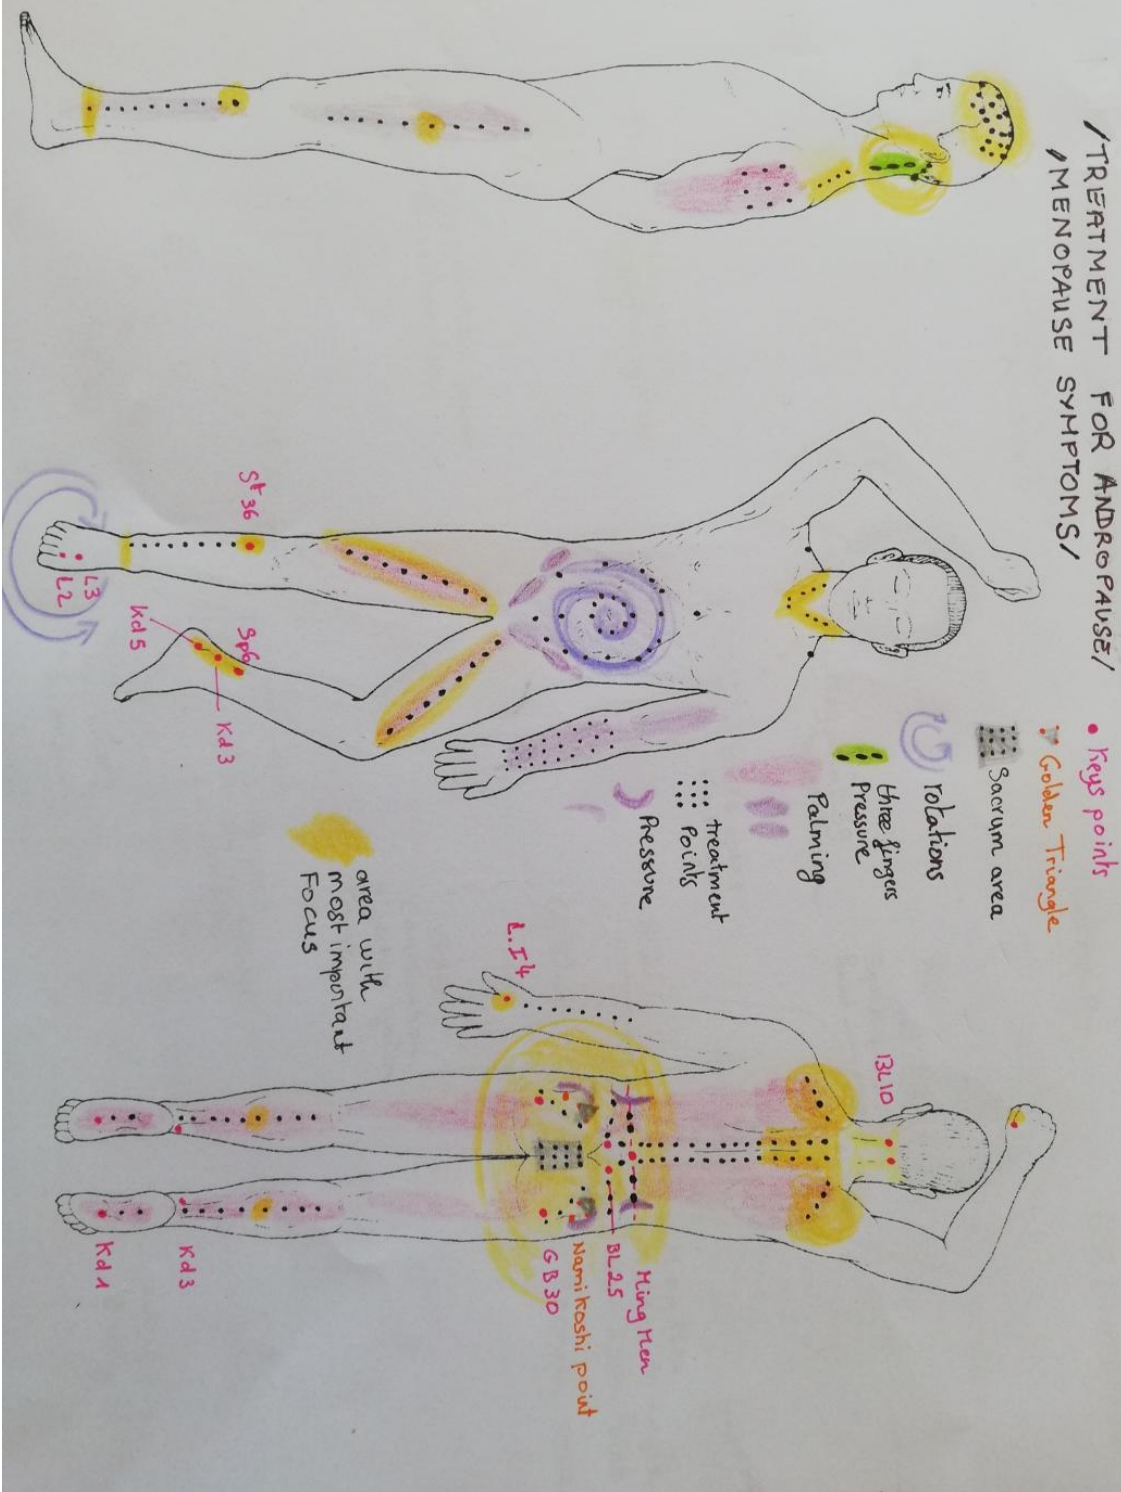 /TREATMENT FOR ANDROPAUSE/
/MENOPAUSE SYMPTOMS/
• Keys points
Golden Triangle
Sacrum area
rotations
three fingers
Pressure
Palming
treatment
Points
Pressure
area with
most important
Focus
St 36
L3
L2
Kd5
Sp6
Kd3
BL10
L.I4
Ming Men
BL25
Namikoshi point
GB30
Kd3
Kd1